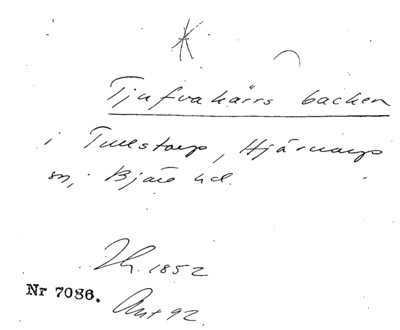 Tjufvakärrs backen
i Tullstorp, Hjärnarp
sn, Bjäre hd.
1852
Nr 7086.
Ant 92